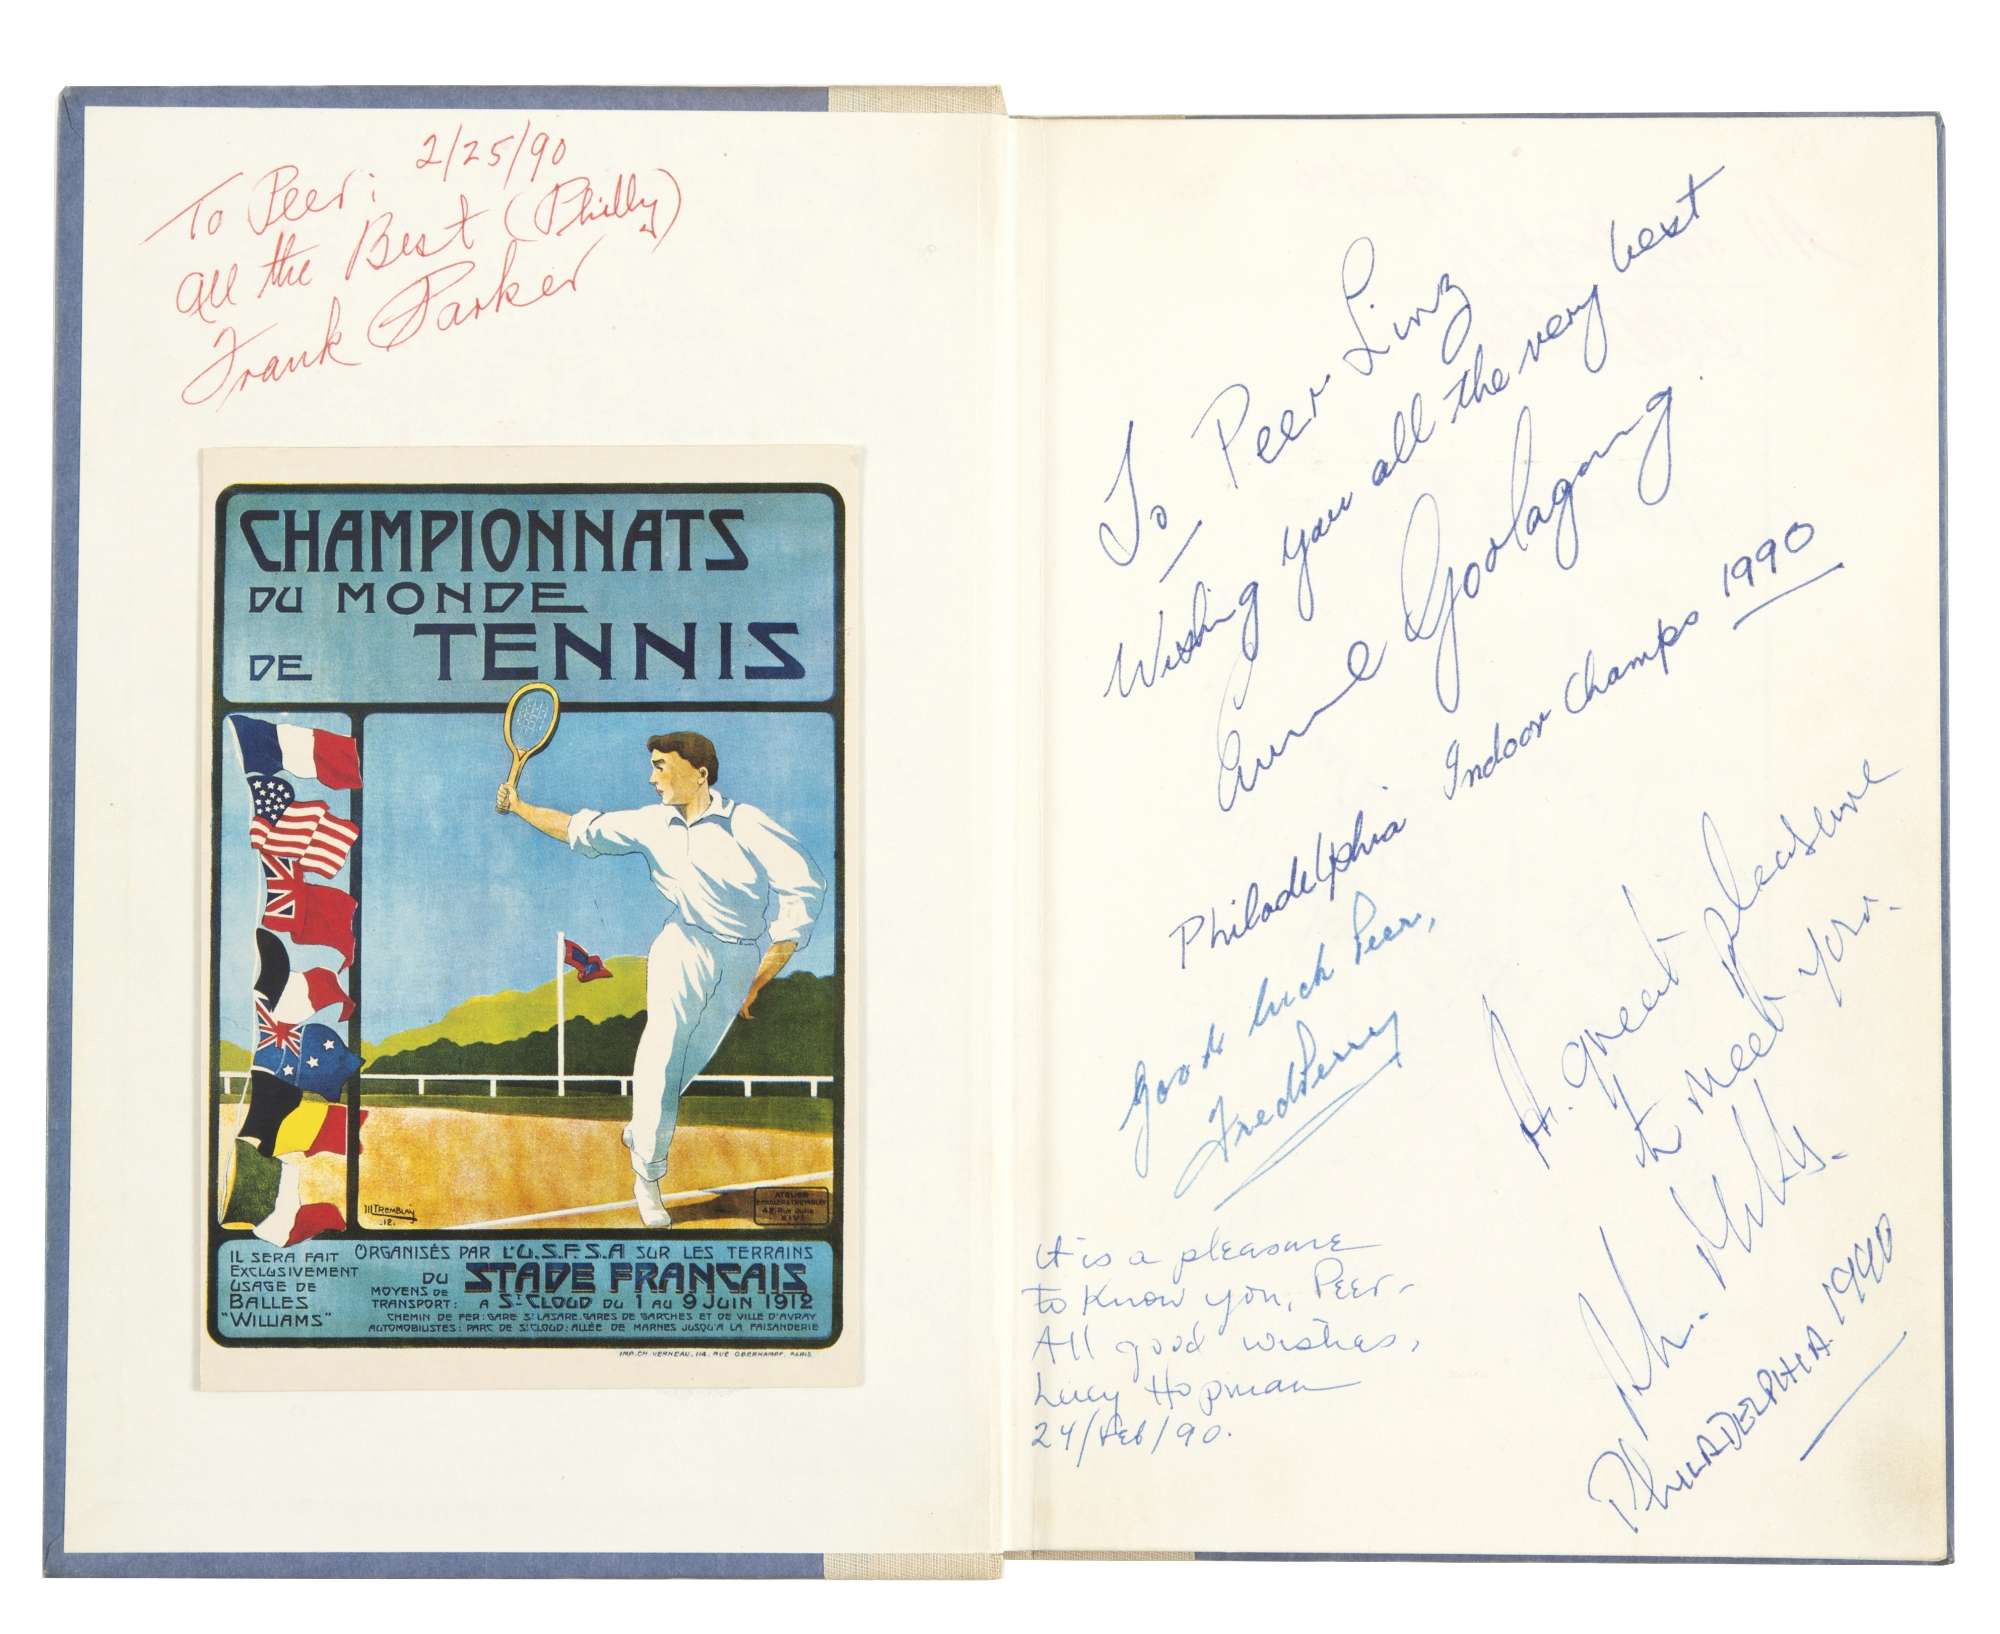 To Peer: 2/25/90
all the Best (Philly)
Frank Parker
CHAMPIONNATS
DU MONDE
DE TENNIS
M TREMBLAY
.12.
ATELIER
XIV
IL SERA FAIT
EXCLUSIVEMENT
USAGE DE
BALLES
"WILLIAMS"
ORGANISÉS PAR L'U.S.F.S.A SUR LES TERRAINS
DU STADE FRANÇAIS
MOYENS DE
TRANSPORT: A St CLOUD DU 1 AU 9 JUIN 1912
CHEMIN DE FER: GARE St LASARE. GARES DE GARCHES ET DE VILLE D'AVRAY
AUTOMOBILISTES: PARC DE St CLOUD: ALLÉE DE MARNES JUSQU'A LA FAISANDERIE
IMP. CH. VERNEAU. 114. RUE OBERKAMPF. PARIS
To Peer Linz
Wishing you all the very best
Evonne Goolagong.
Philadelphia Indoor Champs 1990
Good luck Peer,
Fred Perry
A great pleasure
to meet you.
PHILADELPHIA 1990
It is a pleasure
to know you, Peer-
All good wishes,
Lucy Hopman
24/Feb/90.